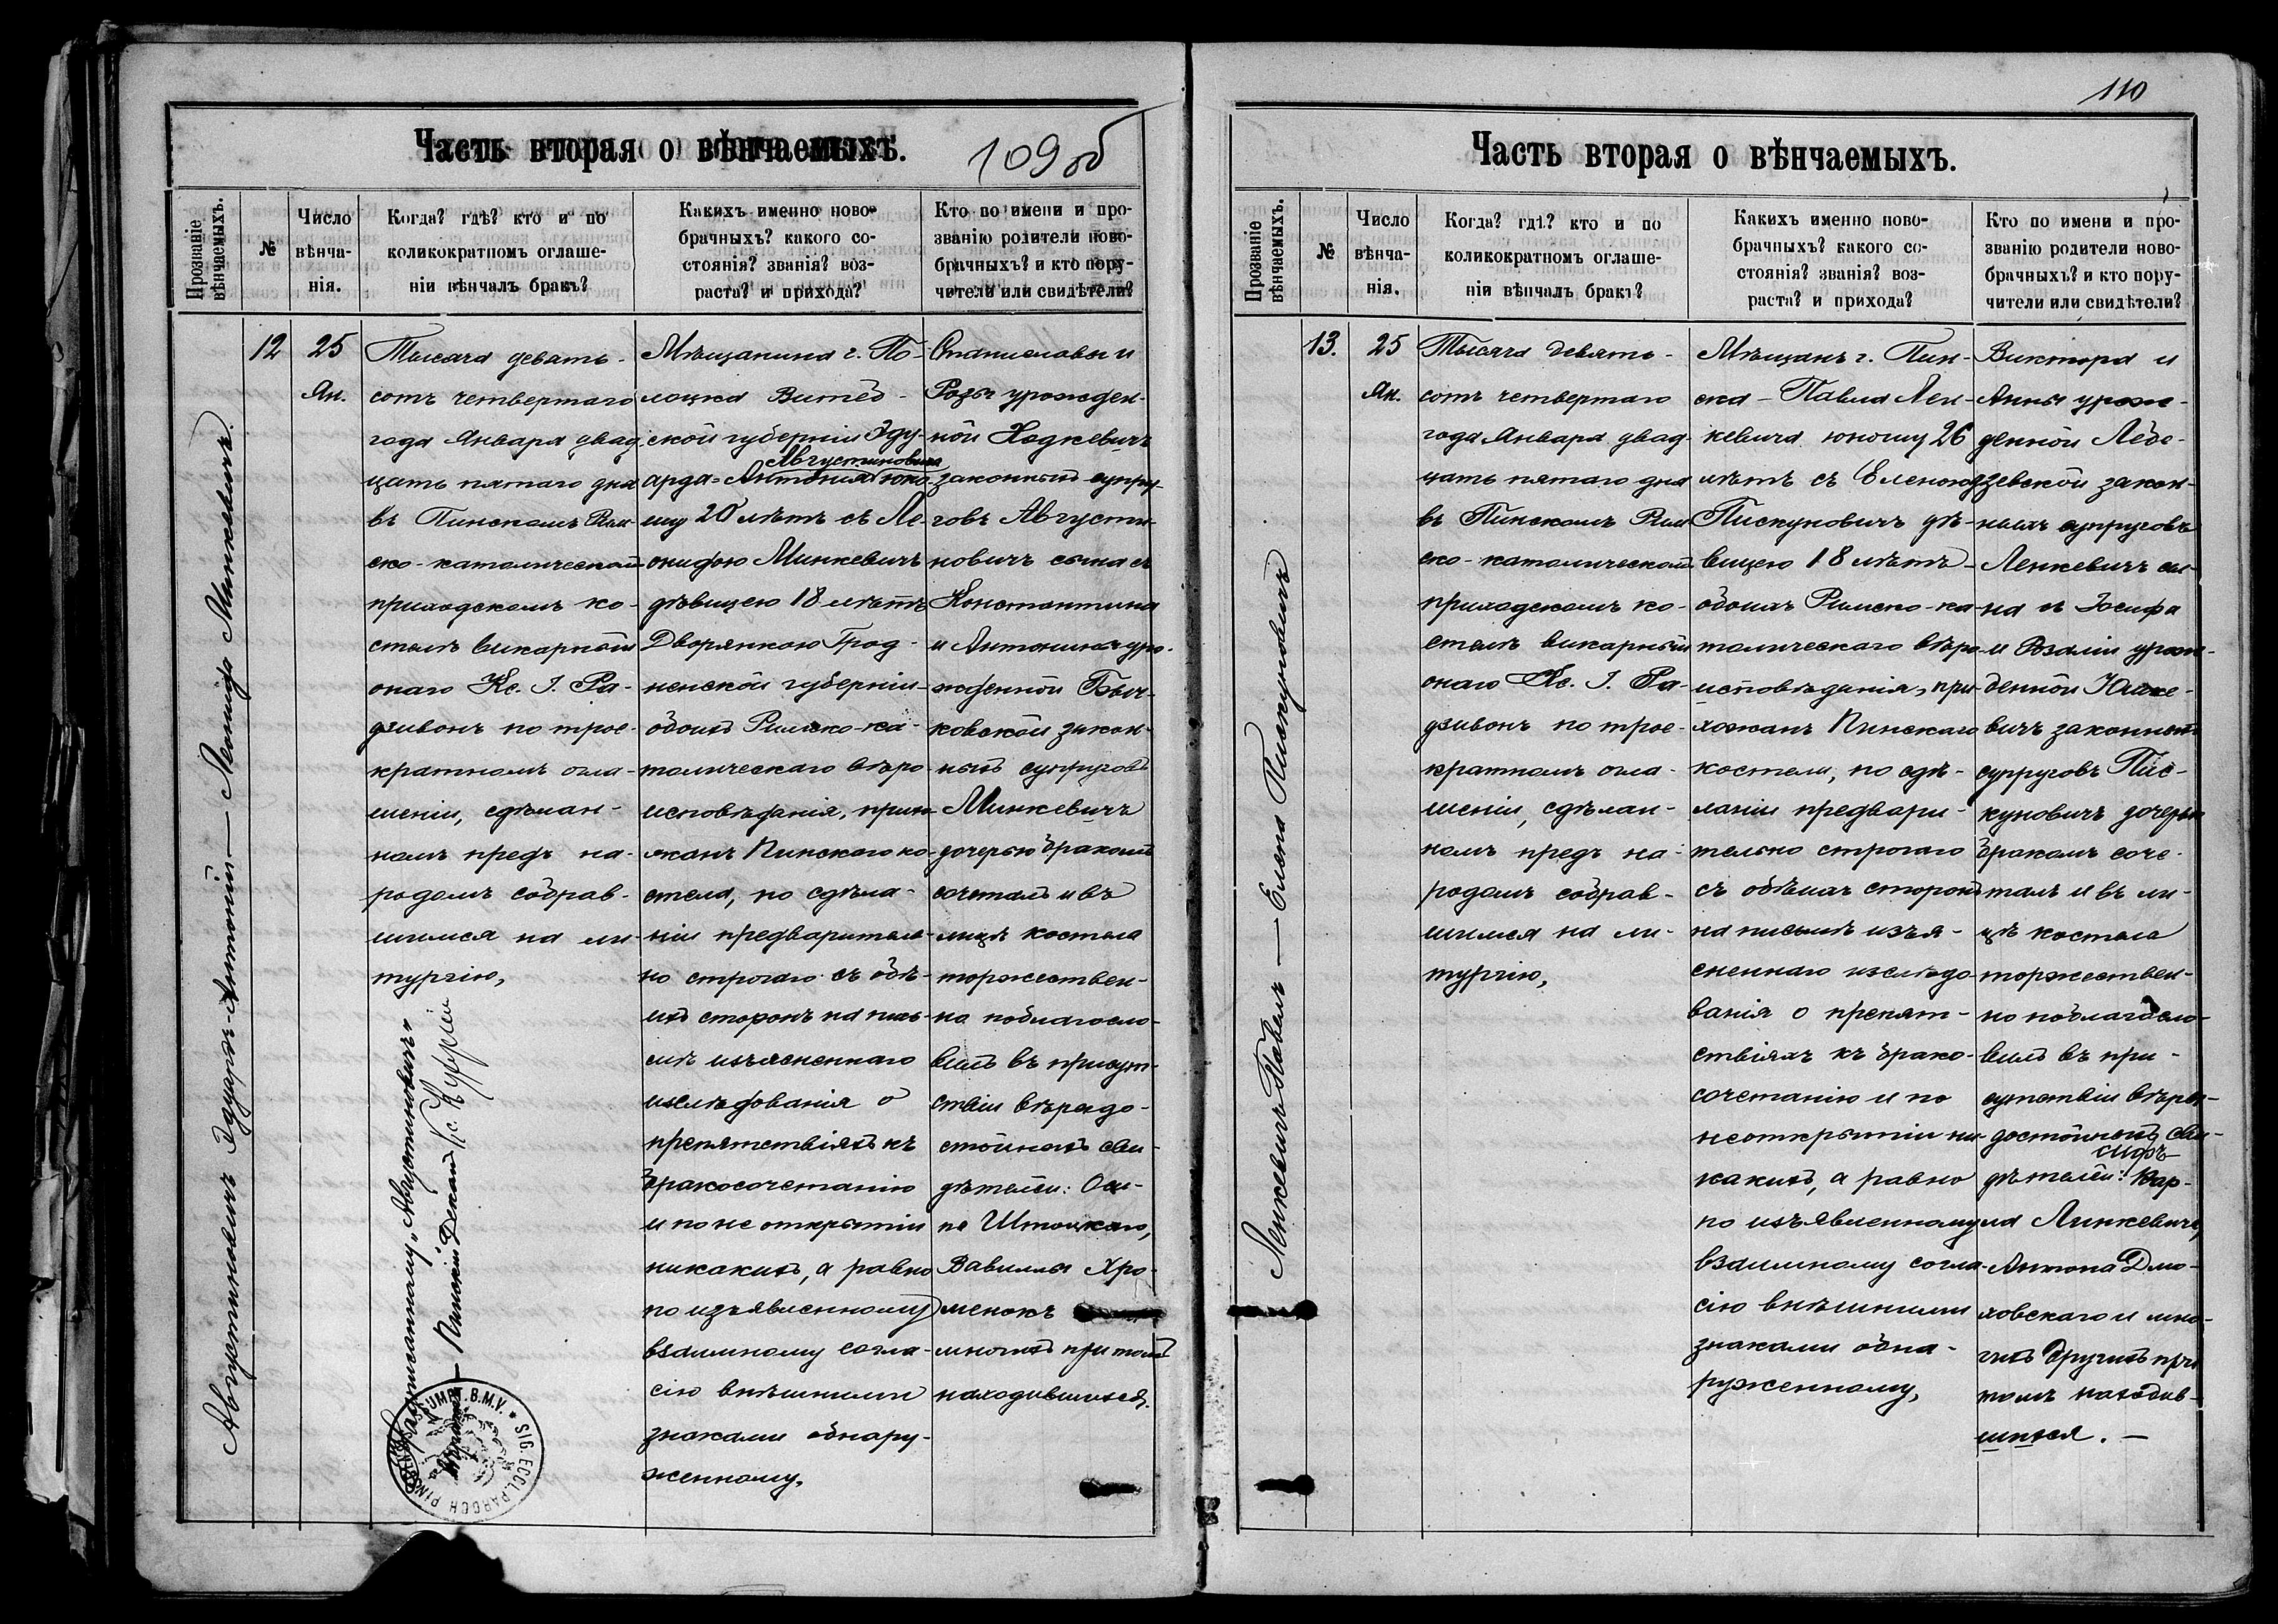 Часть вторая о вѣнчаемыхъ.
109 об
Прозваніе вѣнчаемыхъ.
№
Число
вѣнча-
нія.
Когда? гдѣ? кто и по
коликократномъ оглаше-
ніи вѣнчалъ бракъ?
Какихъ именно ново-
брачныхъ? какого со-
стоянія? званія? воз-
раста? и прихода?
Кто по имени и про-
званію родители ново-
брачныхъ? и кто пору-
чители или свидѣтели?
Августиновичъ Эдуардъ-Антоній — Леонида Минкевичъ.
12
25
Ян.
Тысяча девять-
сотъ четвертаго
года Января двад-
цать пятаго дня
въ Пинскомъ Рим-
ско-католическомъ
приходскомъ ко-
стелѣ викарный
онаго Кс. І. Ра-
дзивонъ по трое-
кратномъ огла-
шеніи, сдѣлан-
номъ предъ на-
родомъ собрав-
шимся на ли-
тургію,
надписанному „Августиновича"
— Пинскій Деканъ Кс.
SIG. ECCL. PAROCH PINS
B.M.V.
Мѣщанина г. По-
лоцка Витеб-
ской губерніи Эду-
Августиновича
арда-Антонія юно-
шу 20 лѣтъ съ Ле-
онидою Минкевичъ
дѣвицею 18 лѣтъ
Дворянкою Грод-
ненской губерніи
обоихъ Римско-ка-
толическаго вѣро-
исповѣданія, прихо-
жанъ Пинскаго ко-
стела, по сдѣла-
ніи предваритель-
но строгаго съ обѣ-
ихъ сторонъ на пись-
мѣ изъясненнаго
изслѣдованія о
препятствіяхъ къ
бракосочетанію
и по не открытіи
никакихъ, а равно
по изъявленному
взаимному согла-
сію внѣшними
знаками обнару-
женному,
Станиславы и
Розы урожден-
ной Ходкевичъ
законныхъ супру-
говъ Августи-
новичъ сына съ
Константина
и Антонины уро-
жденной Быч-
ковской закон-
ныхъ супруговъ
Минкевичъ
дочерью бракомъ
сочеталъ и въ
лицѣ костела
торжествен-
но поблагосло-
вилъ въ присут-
ствіи вѣродо-
стойныхъ сви-
дѣтелей: Оси-
па Штоцкаго,
Вавиллы Хро-
менокъ
многихъ при томъ
находившихся.
110
Часть вторая о вѣнчаемыхъ.
Прозваніе вѣнчаемыхъ.
№
Число
вѣнча-
нія.
Когда? гдѣ? кто и по
коликократномъ оглаше-
ніи вѣнчалъ бракъ?
Какихъ именно ново-
брачныхъ? какого со-
стоянія? званія? воз-
раста? и прихода?
Кто по имени и про-
званію родители ново-
брачныхъ? и кто пору-
чители или свидѣтели?
Ленкевичъ Павелъ — Елена Пискуновичъ
13.
25
Ян.
Тысяча девять-
сотъ четвертаго
года Января двад-
цать пятаго дня
въ Пинскомъ Рим-
ско-католическомъ
приходскомъ ко-
стелѣ викарный
онаго Кс. І. Ра-
дзивонъ по трое-
кратномъ огла-
шеніи, сдѣлан-
номъ предъ на-
родомъ собрав-
шимся на ли-
тургію,
Мѣщанъ г. Пин-
ска - Павла Лен-
кевича юношу 26
лѣтъ съ Еленою
Пискуновичъ дѣ-
вицею 18 лѣтъ -
обоихъ Римско-ка-
толическаго вѣро-
исповѣданія, при-
хожанъ Пинскаго
костела, по сдѣ-
ланіи предвари-
тельно строгаго
съ обѣихъ сторонъ
на письмѣ изъя-
сненнаго изслѣдо-
ванія о препят-
ствіяхъ къ брако-
сочетанію и по
неоткрытіи ни-
какихъ, а равно
по изъявленному
взаимному согла-
сію внѣшними
знаками обна-
руженному,
Виктора и
Анны урож-
денной Лебе-
дзевской закон-
ныхъ супруговъ
Ленкевичъ сы-
на съ Іосифа
и Розаліи урож-
денной Юшке-
вичъ законныхъ
супруговъ Пис-
куновичъ дочерью
бракомъ соче-
талъ и въ ли-
цѣ костела
торжествен-
но поблагосло-
вилъ въ при-
сутствіи вѣро-
достойныхъ сви-
дѣтелей: Кар-
ла Линкевича,
Антона Дмо-
ховскаго и мно-
гихъ другихъ при
томъ находив-
шихся. —